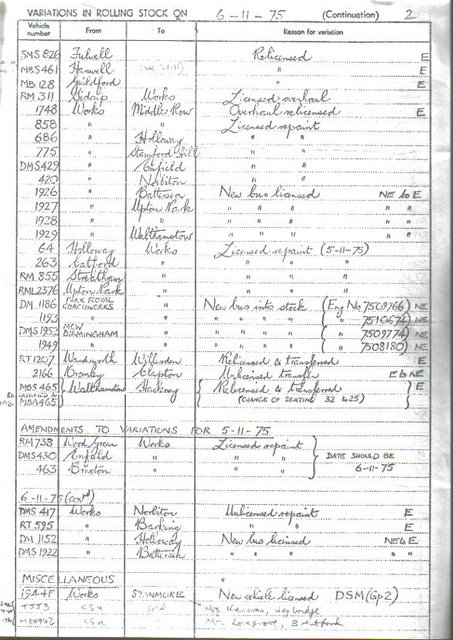 VARIATIONS IN ROLLING STOCK ON 6-11-75 (Continuation) 2
Vehicle number From To Reason for variation
SMS 826 Fulwell Relicensed E
MBS 461 Hanwell " E
MB 128 Guildford " E
RM 311 Sidcup Works Licensed overhaul
1748 Works Middle Row Overhaul relicensed E
858 " " Licensed repaint
686 " Holloway " "
775 " Stamford Hill " "
DMS 429 " Enfield " "
420 " Norbiton " "
1926 " Battersea New bus licensed NE to E
1927 " Upton Park " " " " "
1928 " " " " " " "
1929 " Walthamstow " " " " "
64 Holloway Works Licensed repaint (5-11-75)
263 Catford " " "
RM 855 Streatham " " "
RML 2376 Upton Park " " "
DM 1186 PARK ROYAL COACHWORKS " New bus into stock (Eng No 7509766) NE
1193 " " " " " ( " 7510674) NE
DMS 1952 MCW BIRMINGHAM " " " " " ( " 7509774) NE
1949 " " " " " ( " 7508180) NE
RT 1207 Wandsworth Willesden Relicensed & transferred E
2166 Bromley Clapton Unlicensed transfer E to NE
MBS 465 Walthamstow Hackney Relicensed & transferred E
MBA 465 (CHANGE OF SEATING 32 to 25)
AMENDMENTS TO VARIATIONS FOR 5-11-75
RM 738 Wood Green Works Licensed repaint
DMS 430 Enfield " " " DATE SHOULD BE
463 Brixton " " " 6-11-75
6-11-75 (cont)
DMS 417 Works Norbiton Unlicensed repaint E
RT 595 " Barking " " E
DM 1152 " Holloway New bus licensed NE to E
DMS 1922 " Battersea " " " "
MISCELLANEOUS
1944F Works STANMORE New vehicle licensed DSM (Gp2)